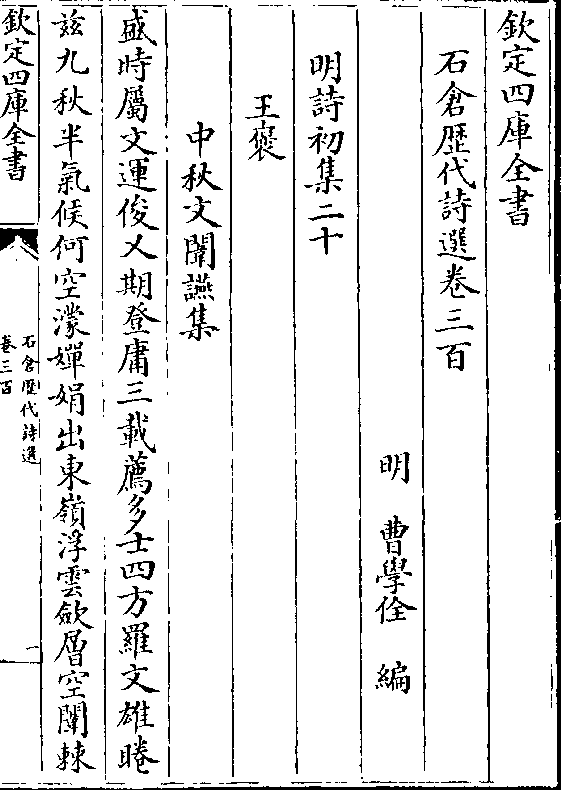 欽定四庫全書
石倉歷代詩選卷三百
明　曹學佺　編
明詩初集二十
王褒
中秋文闈讌集
盛時屬文運俊乂期登庸三載薦多士四方羅文雄睠
茲九秋半氣候何空濛嬋娟出東嶺浮雲斂層空闈棘
欽定四庫全書
石倉歷代詩選
卷三百
一